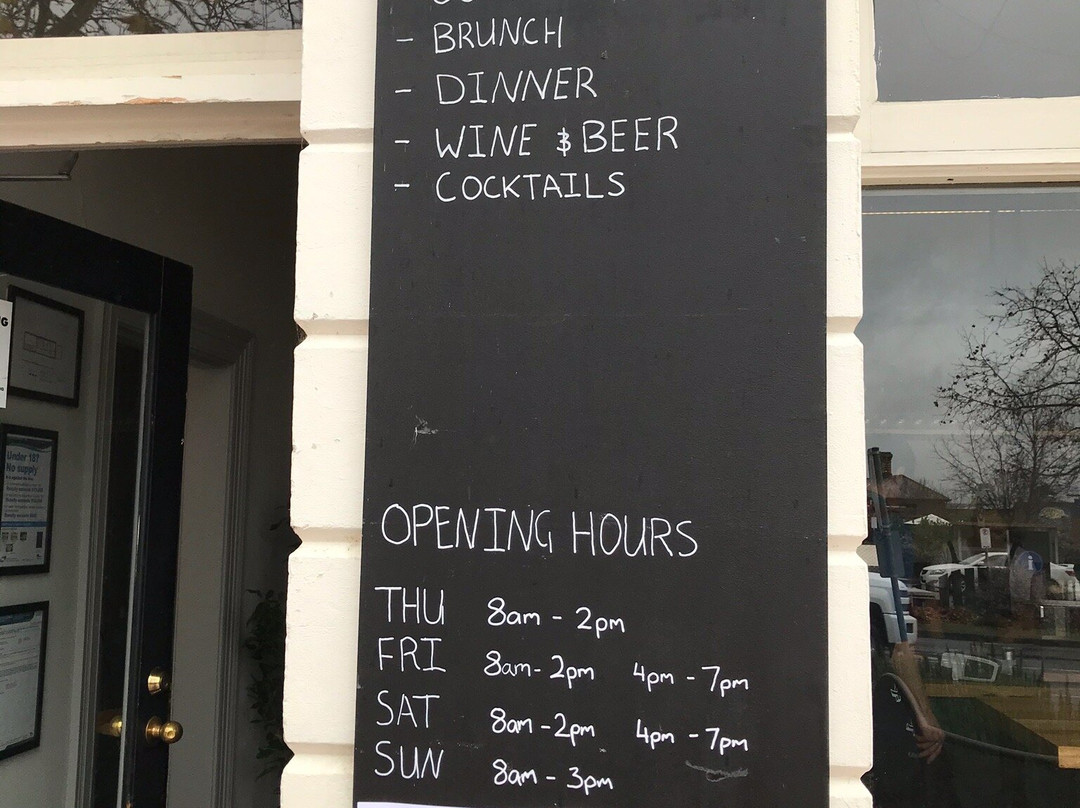 - BRUNCH
- DINNER
- WINE & BEER
- COCKTAILS
OPENING HOURS
THU 8am - 2pm
FRI 8am - 2pm 4pm - 7pm
SAT 8am - 2pm 4pm - 7pm
SUN 8am - 3pm
G
Under 18?
No supply